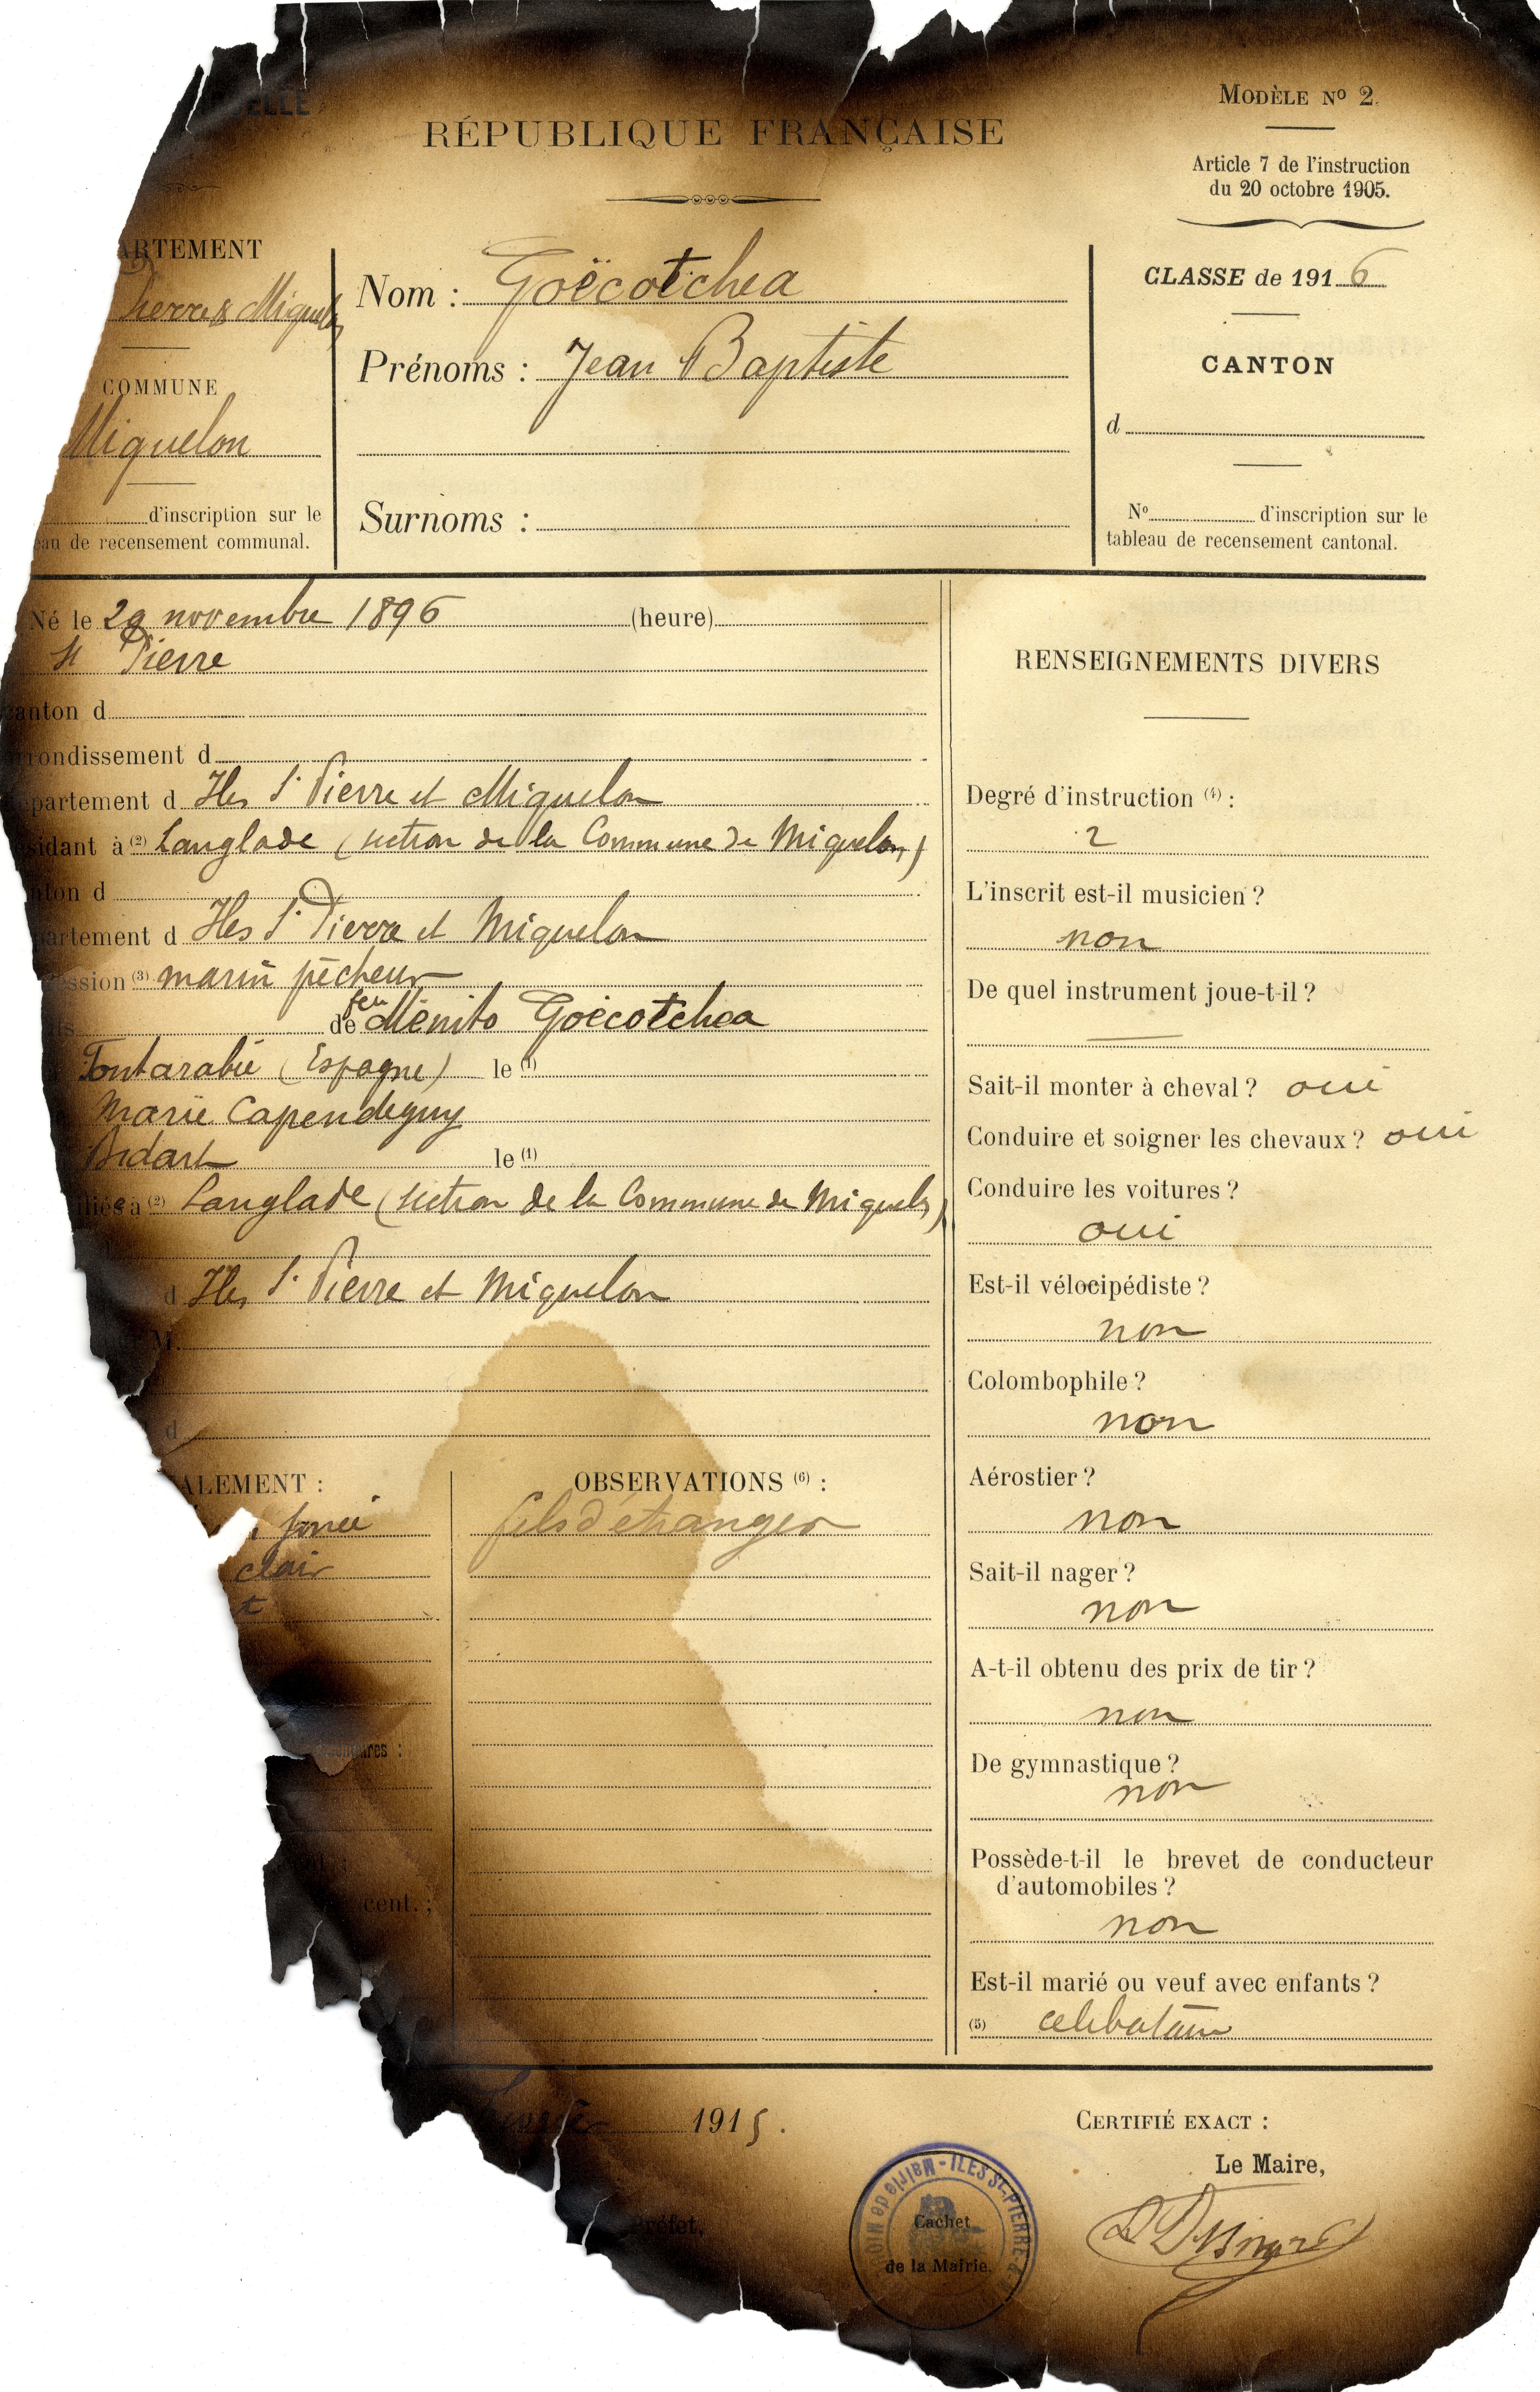 ELLE
RÉPUBLIQUE FRANÇAISE
MODÈLE Nº 2.
Article 7 de l'instruction
du 20 octobre 1905.
ARTEMENT
Pierre & Miquelon
COMMUNE
Miquelon
d'inscription sur le
eau de recensement communal.
Nom : Goëcotchea
Prénoms : Jean Baptiste
Surnoms :
CLASSE de 1916
CANTON
d
Nº d'inscription sur le
tableau de recensement cantonal.
Né le 29 novembre 1896 (heure)
St Pierre
canton d
rrondissement d
partement d Iles St Pierre et Miquelon
sidant à (2) Langlade (section de la Commune de Miquelon)
nton d
partement d Iles St Pierre et Miquelon
ession (3) marin pêcheur
ils de feu Ménito Goëcotchea
Fontarabie (Espagne) le (1)
Marie Capendeguy
Bidart le (1)
iliés à (2) Langlade (section de la Commune de Miquelon)
d Iles St Pierre et Miquelon
M.
d
ALEMENT :
foncé
clair
t
ires :
cent. ;
OBSERVATIONS (6) :
fils d'étranger
RENSEIGNEMENTS DIVERS
Degré d'instruction (4) :
2
L'inscrit est-il musicien ?
non
De quel instrument joue-t-il ?
Sait-il monter à cheval ? oui
Conduire et soigner les chevaux ? oui
Conduire les voitures ?
oui
Est-il vélocipédiste ?
non
Colombophile ?
non
Aérostier ?
non
Sait-il nager ?
non
A-t-il obtenu des prix de tir ?
non
De gymnastique ?
non
Possède-t-il le brevet de conducteur
d'automobiles ?
non
Est-il marié ou veuf avec enfants ?
(5) célibataire
1915.
CERTIFIÉ EXACT :
Le Maire,
réfet,
Mairie de MIQU - ILES St-PIERRE-
Cachet
de la Mairie.